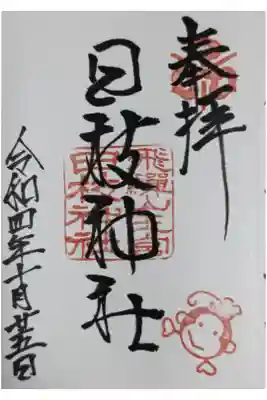 奉拝
日枝神社
令和四年十月廿五日
日枝神社